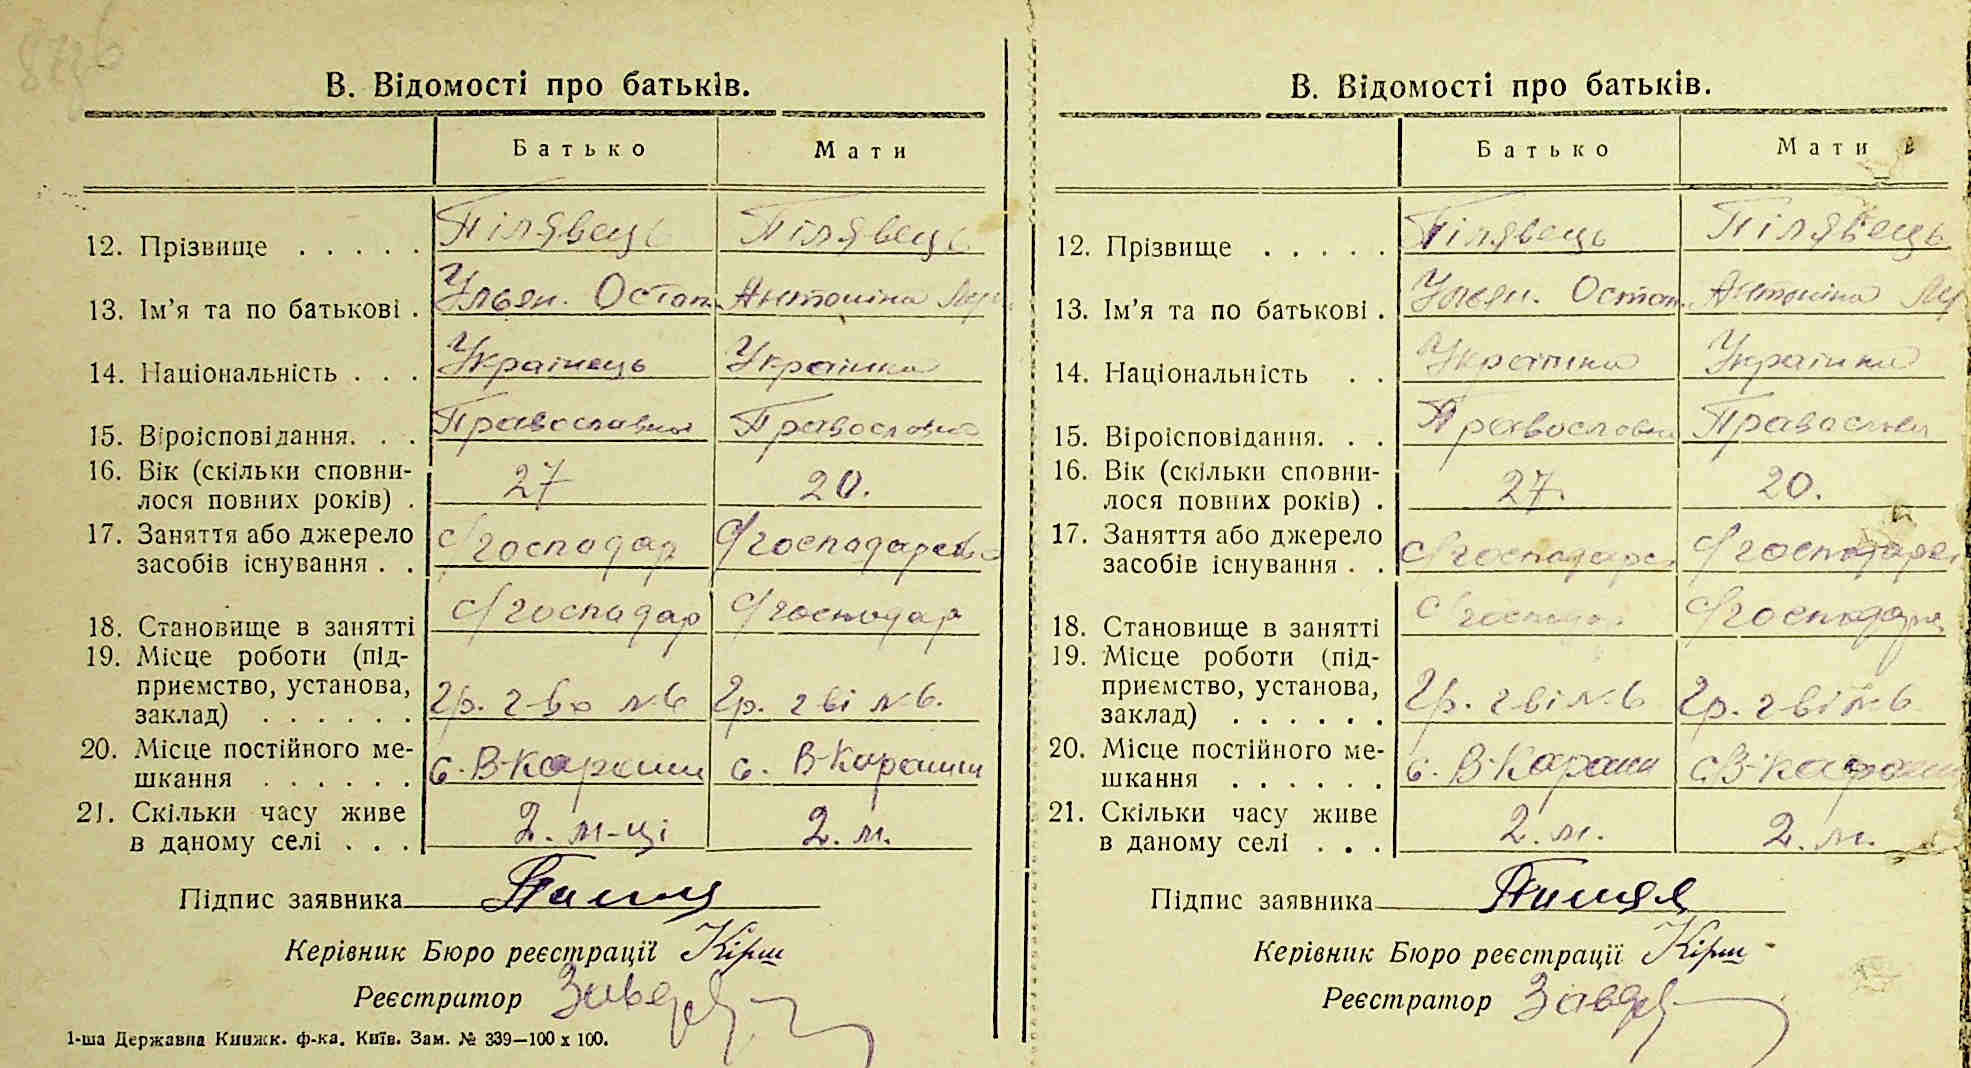 8736
В. Відомості про батьків.
Батько Мати
12. Прізвище . . . . . Пілявець Пілявець
13. Ім'я та по батькові . Ульян. Остап. Антоніна
14. Національність . . . Українець Українка
15. Віроісповідання. . . Православна Православна
16. Вік (скільки сповни-
лося повних років) . 27 20.
17. Заняття або джерело
засобів існування . . С/господар С/господарство
18. Становище в занятті С/господар С/господар
19. Місце роботи (під-
приємство, установа,
заклад) . . . . . . Гр. г-во №6 Гр. г ві №6.
20. Місце постійного ме-
шкання . . . . . . с. В-Карашин с. В-Карашин
21. Скільки часу живе
в даному селі . . . 2. м-ці 2. м.
Підпис заявника
Керівник Бюро реєстрації Кірш
Реєстратор
1-ша Державна Книжк. ф-ка. Київ. Зам. № 339—100 х 100.
В. Відомості про батьків.
Батько Мати
12. Прізвище . . . . . Пілявець Пілявець
13. Ім'я та по батькові . Ульян. Остап. Антоніна
14. Національність . . Українка Українка
15. Віроісповідання. . . Православна Православна
16. Вік (скільки сповни-
лося повних років) . 27. 20.
17. Заняття або джерело
засобів існування . . С/господарс С/господарс
18. Становище в занятті С/господар С/господар
19. Місце роботи (під-
приємство, установа,
заклад) . . . . . . Гр. г ві №6 Гр. г ві №6
20. Місце постійного ме-
шкання . . . . . . с. В-Караши с. В-Караши
21. Скільки часу живе
в даному селі . . . 2. м. 2. м.
Підпис заявника
Керівник Бюро реєстрації Кірш
Реєстратор